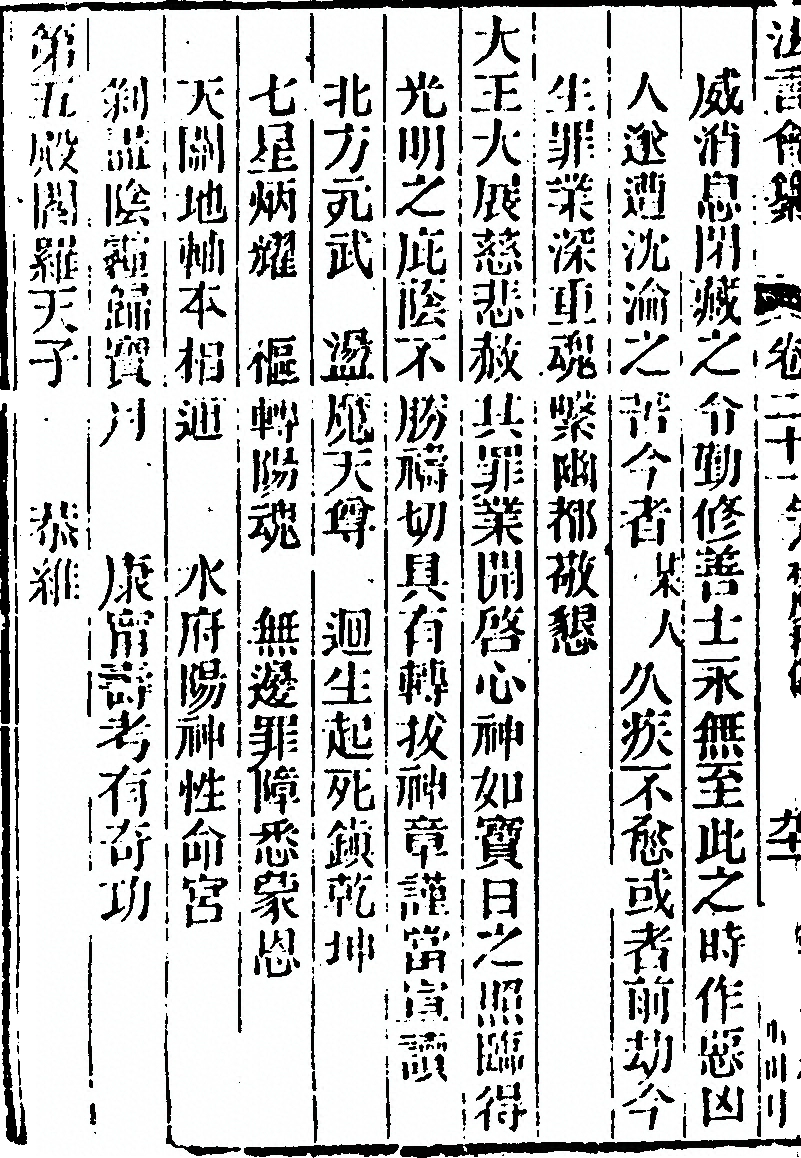 法言會纂 卷二十一
威消息閉藏之令勤修善士永無至此之時作惡凶
人遂遭沈淪之苦今者某人久疾不愈或者前劫今
生罪業深重魂繫幽都敬懇
大王大展慈悲赦其罪業開啓心神如寶日之照臨得
光明之庇蔭不勝禱切具有轉拔神章謹當宣讀
北方元武 盪魔天尊 迴生起死鎮乾坤
七星炳耀 樞轉陽魂 無邊罪障悉蒙恩
天關地軸本相通 水府陽神性命宮
刹謐陰霾歸寶月 康甯壽考有奇功
第五殿閻羅天子 恭維